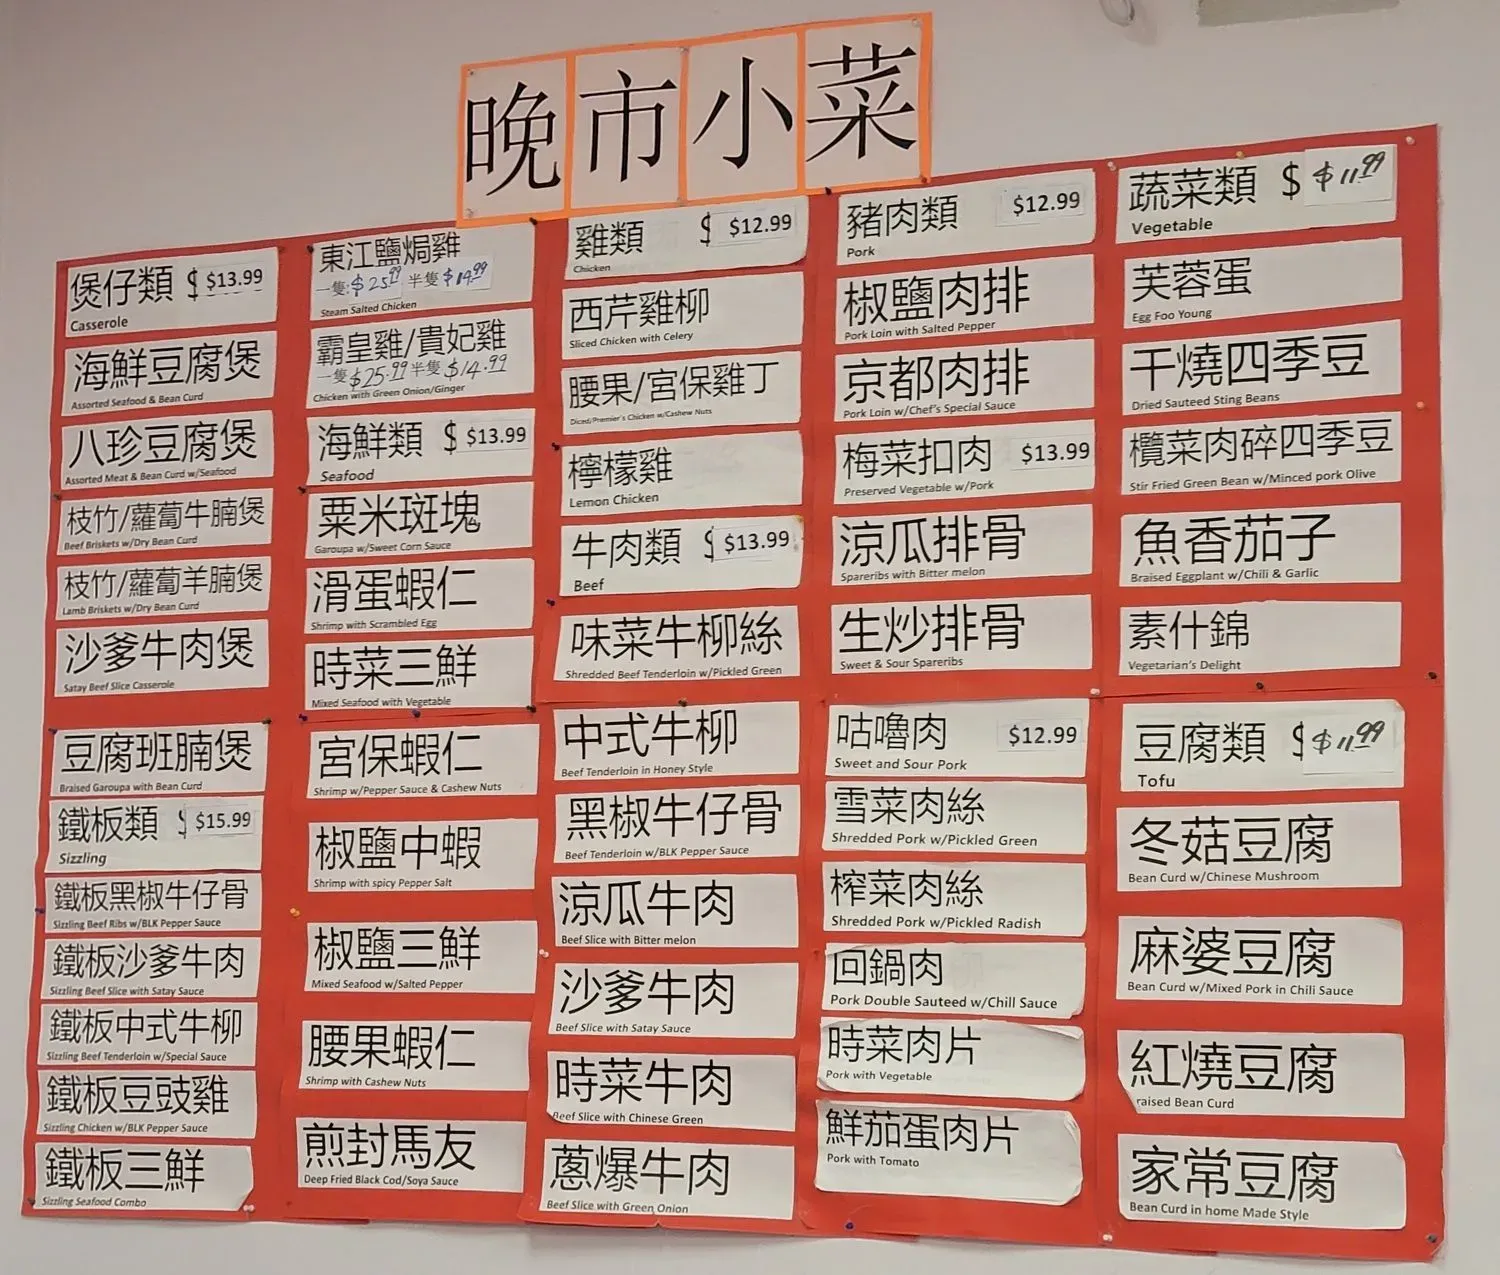 晚市小菜
煲仔類 $ $13.99
Casserole
海鮮豆腐煲
Assorted Seafood & Bean Curd
八珍豆腐煲
Assorted Meat & Bean Curd w/Seafood
枝竹/蘿蔔牛腩煲
Beef Briskets w/Dry Bean Curd
枝竹/蘿蔔羊腩煲
Lamb Briskets w/Dry Bean Curd
沙爹牛肉煲
Satay Beef Slice Casserole
豆腐班腩煲
Braised Garoupa with Bean Curd
鐵板類 $ $15.99
Sizzling
鐵板黑椒牛仔骨
Sizzling Beef Ribs w/BLK Pepper Sauce
鐵板沙爹牛肉
Sizzling Beef Slice with Satay Sauce
鐵板中式牛柳
Sizzling Beef Tenderloin w/Special Sauce
鐵板豆豉雞
Sizzling Chicken w/BLK Pepper Sauce
鐵板三鮮
Sizzling Seafood Combo
東江鹽焗雞
一隻:$25.99 半隻$14.99
Steam Salted Chicken
霸皇雞/貴妃雞
一隻$25.99半隻$14.99
Chicken with Green Onion/Ginger
海鮮類 $ $13.99
Seafood
粟米斑塊
Garoupa w/Sweet Corn Sauce
滑蛋蝦仁
Shrimp with Scrambled Egg
時菜三鮮
Mixed Seafood with Vegetable
宮保蝦仁
Shrimp w/Pepper Sauce & Cashew Nuts
椒鹽中蝦
Shrimp with spicy Pepper Salt
椒鹽三鮮
Mixed Seafood w/Salted Pepper
腰果蝦仁
Shrimp with Cashew Nuts
煎封馬友
Deep Fried Black Cod/Soya Sauce
雞類 $ $12.99
Chicken
西芹雞柳
Sliced Chicken with Celery
腰果/宮保雞丁
Diced/Premier's Chicken w/Cashew Nuts
檸檬雞
Lemon Chicken
牛肉類 $ $13.99
Beef
味菜牛柳絲
Shredded Beef Tenderloin w/Pickled Green
中式牛柳
Beef Tenderloin in Honey Style
黑椒牛仔骨
Beef Tenderloin w/BLK Pepper Sauce
涼瓜牛肉
Beef Slice with Bitter melon
沙爹牛肉
Beef Slice with Satay Sauce
時菜牛肉
Beef Slice with Chinese Green
蔥爆牛肉
Beef Slice with Green Onion
豬肉類 $12.99
Pork
椒鹽肉排
Pork Loin with Salted Pepper
京都肉排
Pork Loin w/Chef's Special Sauce
梅菜扣肉 $13.99
Preserved Vegetable w/Pork
涼瓜排骨
Spareribs with Bitter melon
生炒排骨
Sweet & Sour Spareribs
咕嚕肉 $12.99
Sweet and Sour Pork
雪菜肉絲
Shredded Pork w/Pickled Green
榨菜肉絲
Shredded Pork w/Pickled Radish
回鍋肉
Pork Double Sauteed w/Chill Sauce
時菜肉片
Pork with Vegetable
鮮茄蛋肉片
Pork with Tomato
蔬菜類 $ $11.99
Vegetable
芙蓉蛋
Egg Foo Young
干燒四季豆
Dried Sauteed Sting Beans
欖菜肉碎四季豆
Stir Fried Green Bean w/Minced pork Olive
魚香茄子
Braised Eggplant w/Chili & Garlic
素什錦
Vegetarian's Delight
豆腐類 $ $11.99
Tofu
冬菇豆腐
Bean Curd w/Chinese Mushroom
麻婆豆腐
Bean Curd w/Mixed Pork in Chili Sauce
紅燒豆腐
raised Bean Curd
家常豆腐
Bean Curd in home Made Style